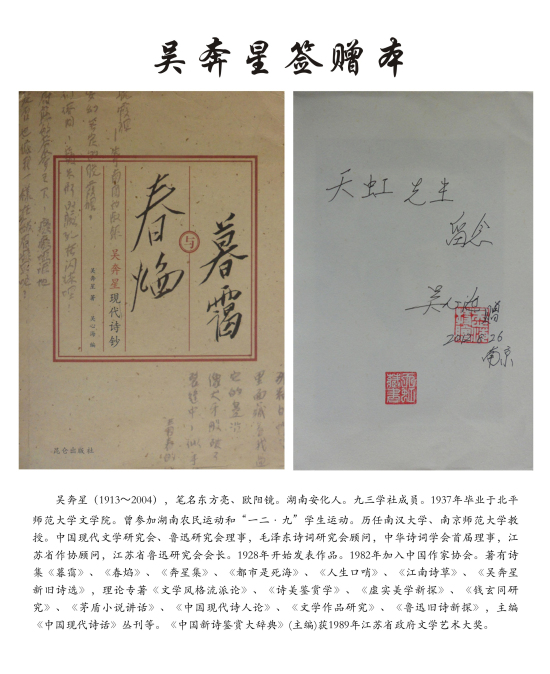 吴奔星签赠本
春焰
与
暮霭
吴奔星现代诗钞
吴奔星 著 吴心海 编
昆仑出版社
天虹 先生
留念
吴心海 赠
南京
吴奔星（1913～2004），笔名东方亮、欧阳镜。湖南安化人。九三学社成员。1937年毕业于北平
师范大学文学院。曾参加湖南农民运动和“一二·九”学生运动。历任南汉大学、南京师范大学教
授。中国现代文学研究会、鲁迅研究会理事，毛泽东诗词研究会顾问，中华诗词学会首届理事，江
苏省作协顾问，江苏省鲁迅研究会会长。1928年开始发表作品。1982年加入中国作家协会。著有诗
集《暮霭》、《春焰》、《奔星集》、《都市是死海》、《人生口哨》、《江南诗草》、《吴奔星
新旧诗选》，理论专著《文学风格流派论》、《诗美鉴赏学》、《虚实美学新探》、《钱玄同研
究》、《茅盾小说讲话》、《中国现代诗人论》、《文学作品研究》、《鲁迅旧诗新探》，主编
《中国现代诗话》丛刊等。《中国新诗鉴赏大辞典》(主编)获1989年江苏省政府文学艺术大奖。